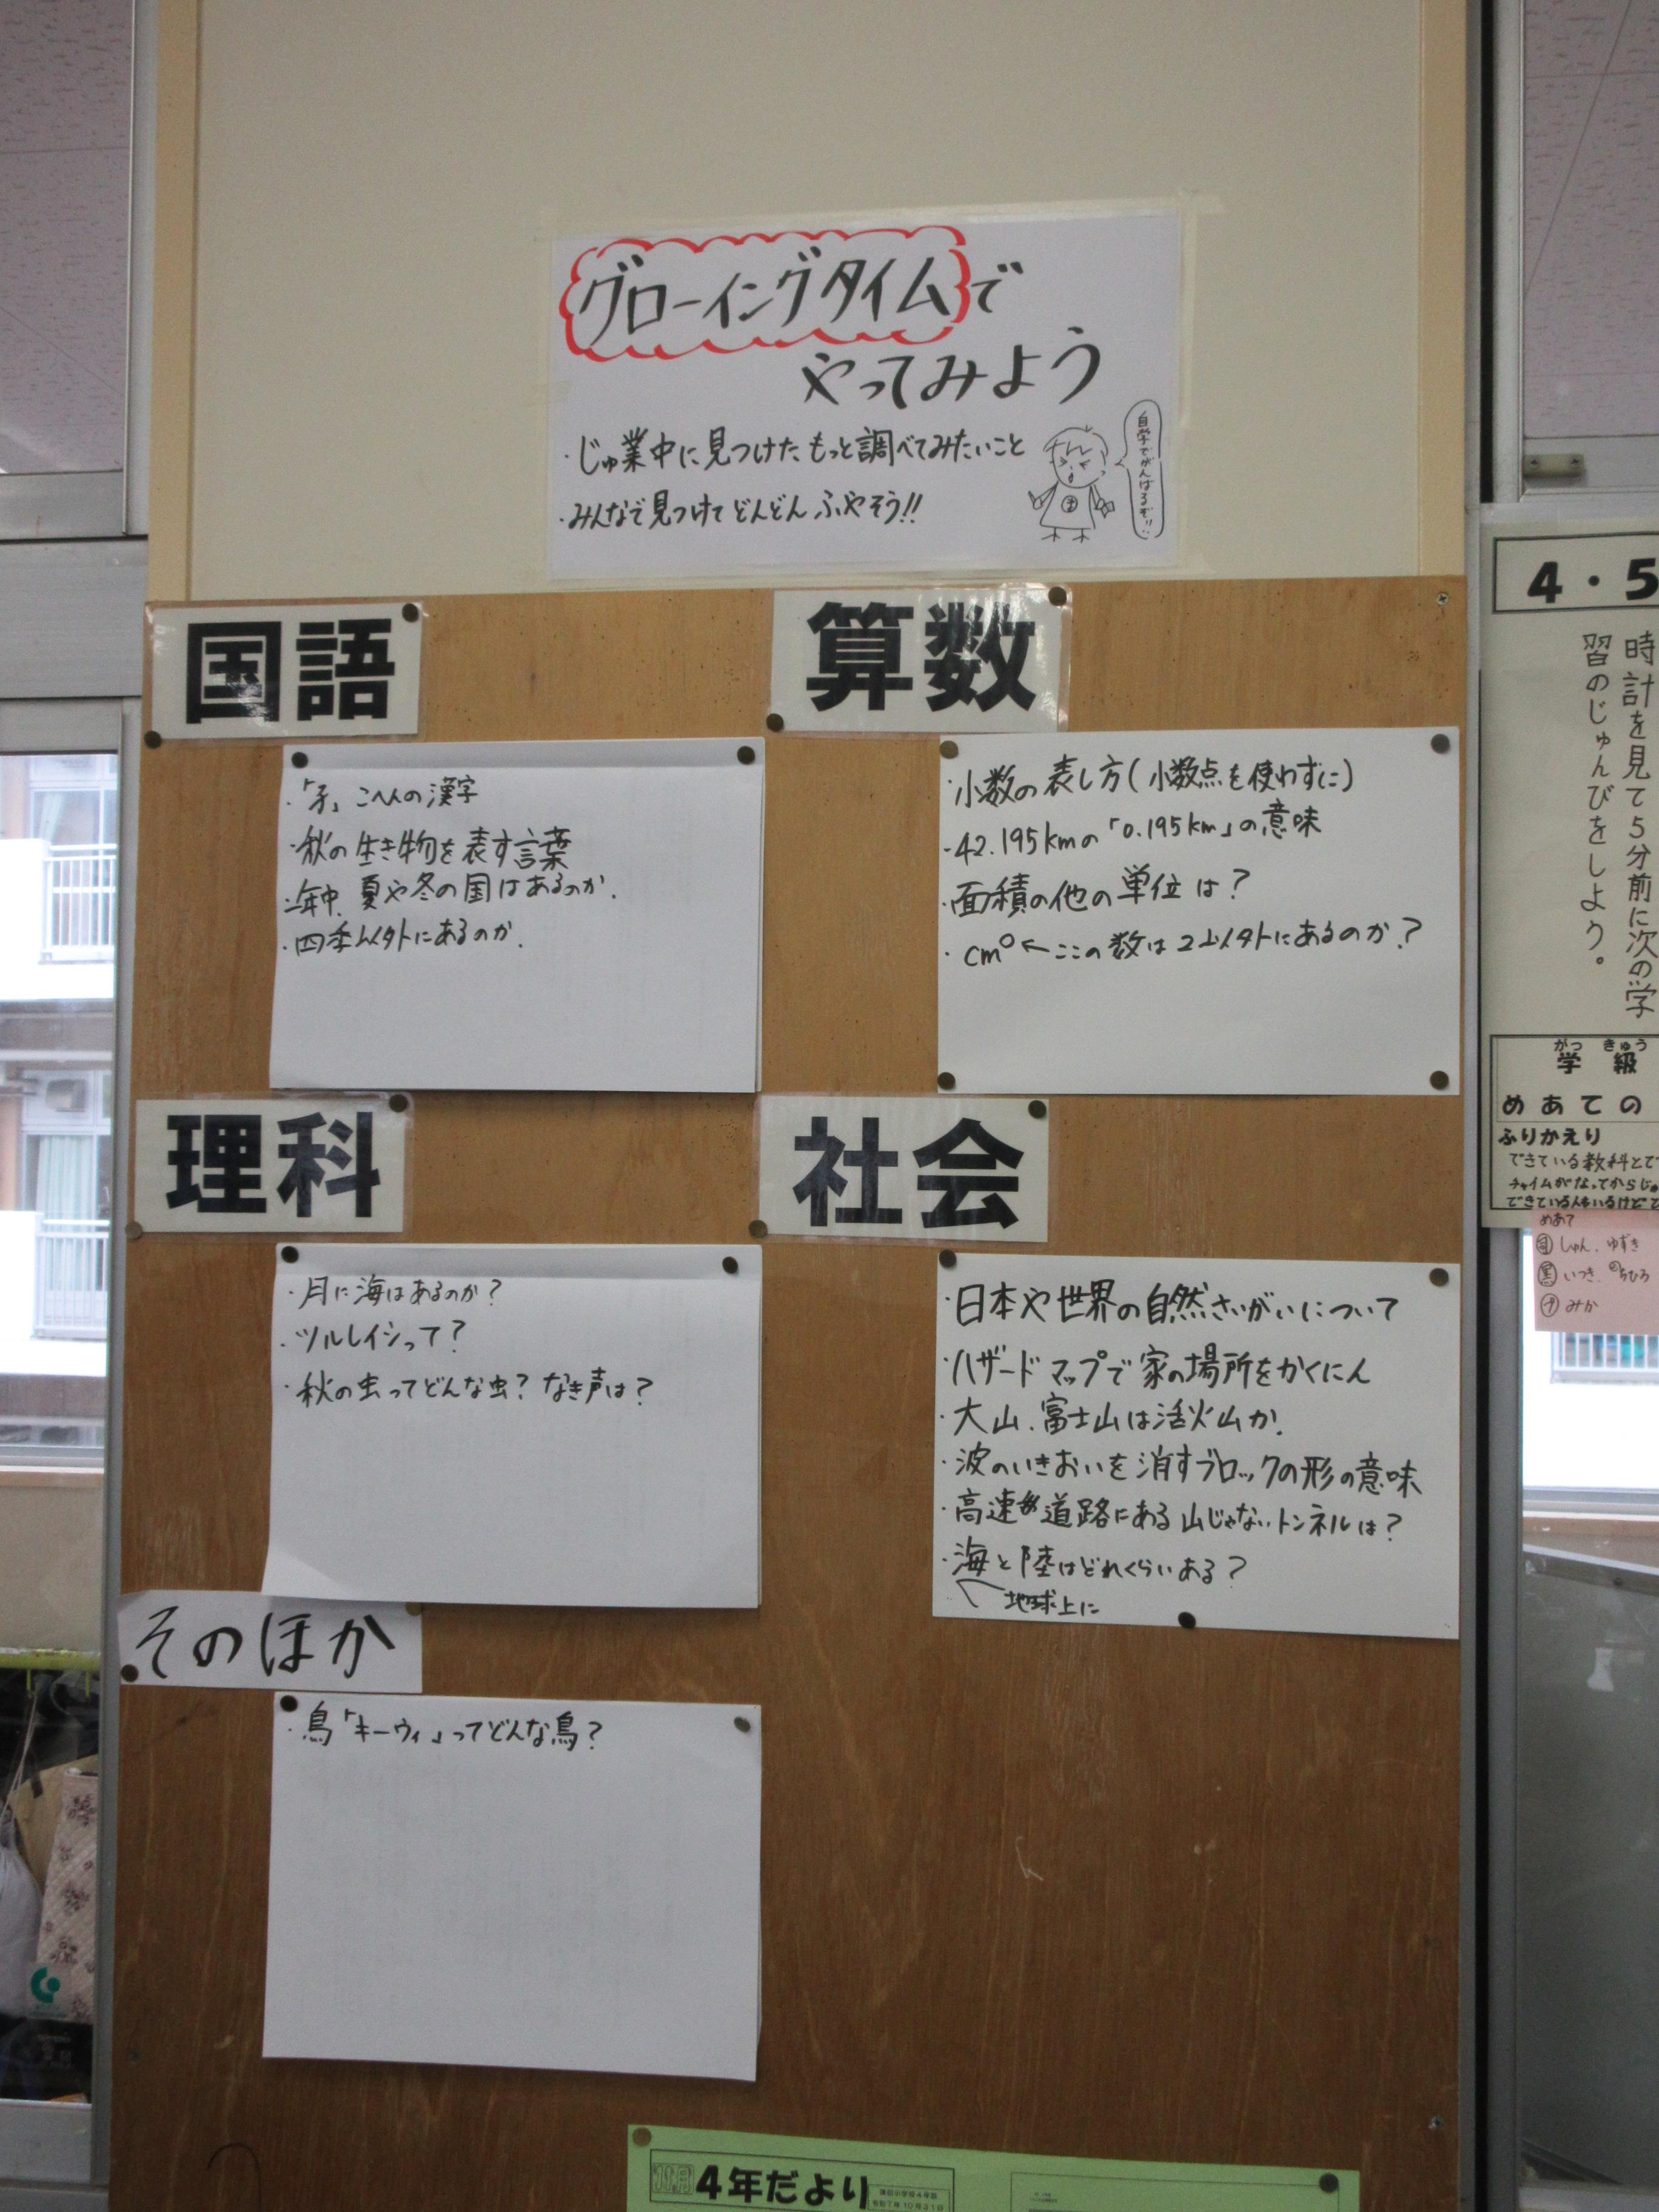 グローイングタイムで
やってみよう
・じゅ業中に見つけたもっと調べてみたいこと
・みんなで見つけてどんどんふやそう!!
自学でがんばるぞ!!
国語
・「子」こへんの漢字
・秋の生き物を表す言葉
・一年中、夏や冬の国はあるのか.
・四季以外にあるのか.
算数
・小数の表し方(小数点を使わずに)
・42.195kmの「0.195km」の意味
・面積の他の単位は?
・cm○←ここの数は2以外にあるのか?
理科
・月に海はあるのか?
・ツルレイシって?
・秋の虫ってどんな虫?なき声は?
社会
・日本や世界の自然さいがいについて
・ハザードマップで家の場所をかくにん
・大山、富士山は活火山か.
・波のいきおいを消すブロックの形の意味
・高速道路にある山じゃないトンネルは?
・海と陸はどれくらいある?
地球上に
そのほか
・鳥「キーウィ」ってどんな鳥?
11月
4年だより
10月31日
4・5
時計を見て5分前に次の学
習のじゅんびをしよう。
がっきゅう
学級
めあての
ふりかえり
できている教科とて
チャイムがなってからじゅ
できている人もいるけどて
めあて
しゅん、ゆずき
いつき、ちひろ
みか